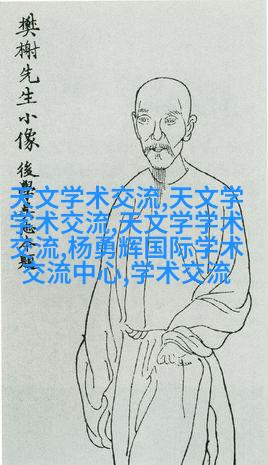 樊榭先生小像
後學
題
天文学术交流,天文学
学术交流,天文学学术
交流,杨勇辉国际学术
交流中心,学术交流